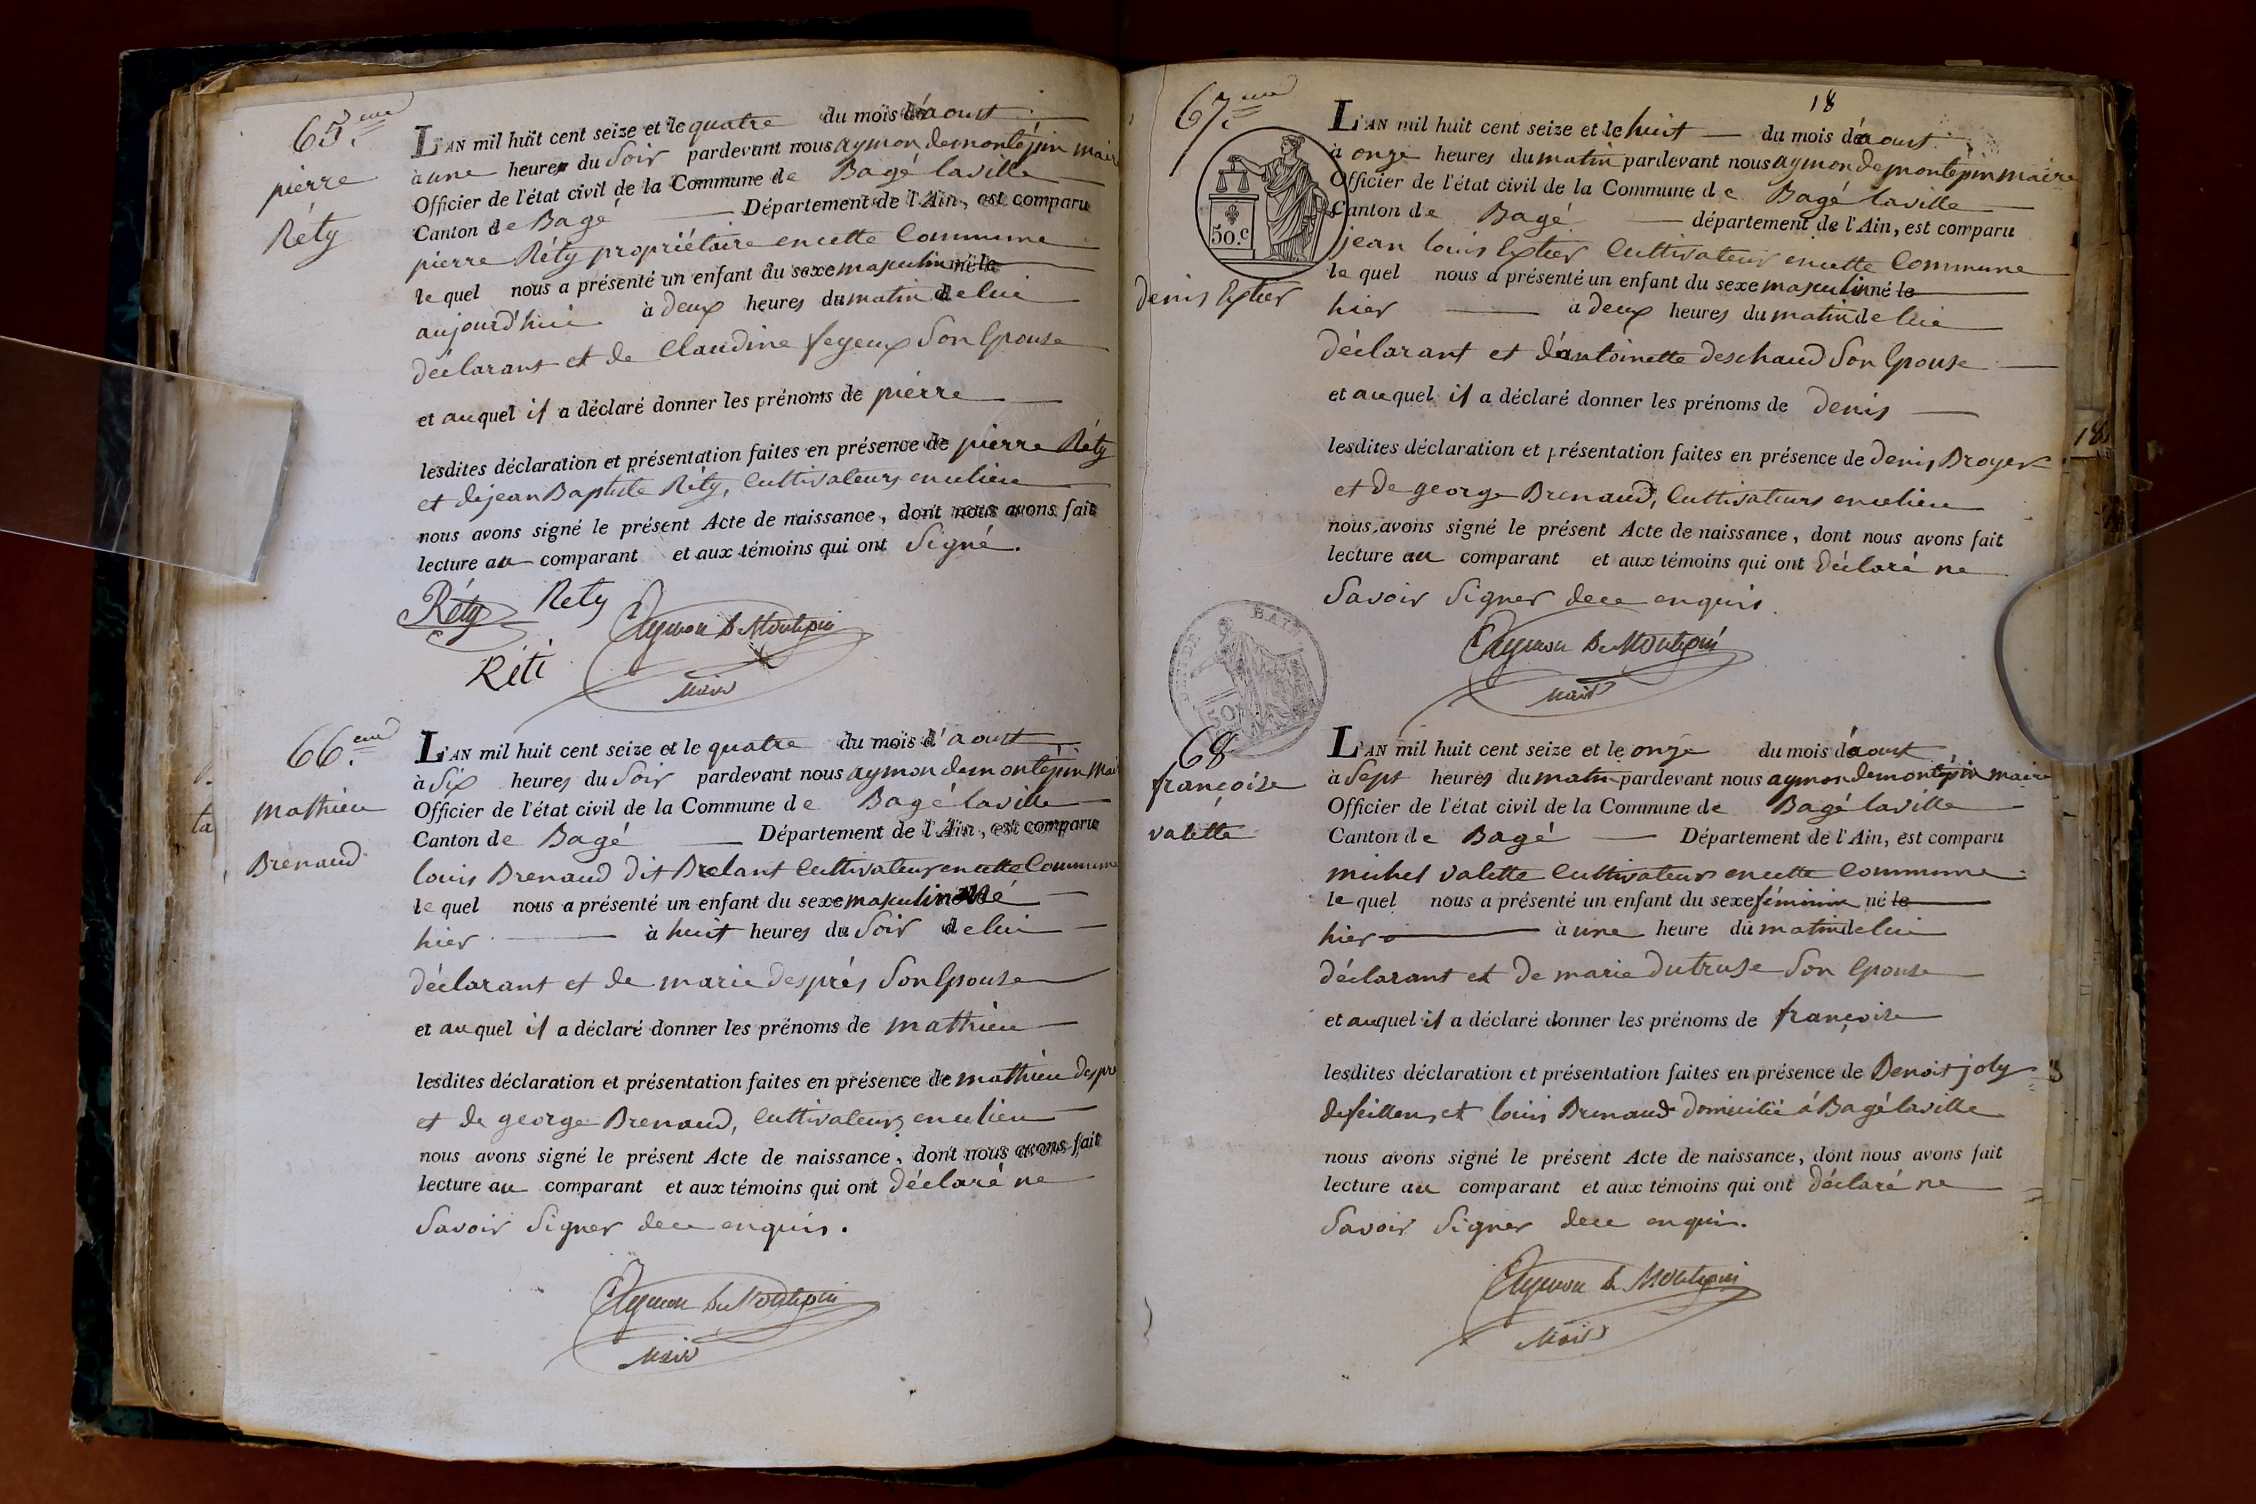 65.eme
pierre
Réty
L'AN mil huit cent seize et le quatre du mois d'aoust
à une heure du Soir pardevant nous aymon demontépin maire
Officier de l'état civil de la Commune de Bagé laville
Canton de Bagé Département de l'Ain, est comparu
pierre Réty propriétaire encette Commune
le quel nous a présenté un enfant du sexe masculin né le
aujourd'hui à deux heures du matin de lui
déclarant et de Claudine feyeux Son Epouse
et auquel il a déclaré donner les prénoms de pierre
lesdites déclaration et présentation faites en présence de pierre Réty
et dejean Baptiste Réty, Cultivateurs encelieu
nous avons signé le présent Acte de naissance, dont nous avons fait
lecture au comparant et aux témoins qui ont Signé.
Réty Rety Aymon De Montepin
Réti Maire
66.eme
mathieu
Brenaud
L'AN mil huit cent seize et le quatre du mois d'aoust
à Six heures du Soir pardevant nous aymon demontépin mai
Officier de l'état civil de la Commune de Bagé laville
Canton de Bagé Département de l'Ain, est comparu
louis Brenaud dit Brelant Cultivateur encette Commune
le quel nous a présenté un enfant du sexe masculin né
hier à huit heures du Soir de lui
déclarant et de marie després Son Epouse
et auquel il a déclaré donner les prénoms de mathieu
lesdites déclaration et présentation faites en présence de mathieu despr
et de george Brenaud, Cultivateurs encelieu
nous avons signé le présent Acte de naissance, dont nous avons fait
lecture au comparant et aux témoins qui ont déclaré ne
Savoir Signer dece enquis.
Aymon De Montepin
Maire
18
67.eme
50.c
denis
L'AN mil huit cent seize et le huit du mois d'aoust
à onze heures du matin pardevant nous aymon demontépin maire
Officier de l'état civil de la Commune de Bagé laville
Canton de Bagé département de l'Ain, est comparu
jean louis Cultivateur encette Commune
le quel nous a présenté un enfant du sexe masculin né le
hier à deux heures du matin de lui
déclarant et d'antoinette deschaud Son Epouse
et auquel il a déclaré donner les prénoms de denis
lesdites déclaration et présentation faites en présence de denis Broyer
et de george Brenaud, Cultivateurs encelieu
nous avons signé le présent Acte de naissance, dont nous avons fait
lecture au comparant et aux témoins qui ont déclaré ne
Savoir Signer dece enquis.
Aymon De Montepin
Maire
18
68
françoise
valette
L'AN mil huit cent seize et le onze du mois d'aoust
à Sept heures du matin pardevant nous aymon demontépin maire
Officier de l'état civil de la Commune de Bagé laville
Canton de Bagé Département de l'Ain, est comparu
michel valette Cultivateur encette Commune
le quel nous a présenté un enfant du sexe féminin né le
hier à une heure du matin de lui
déclarant et de marie dutruse Son Epouse
et auquel il a déclaré donner les prénoms de françoise
lesdites déclaration et présentation faites en présence de Benoit joly
defeillens et louis Brenaud domicilié à Bagé laville
nous avons signé le présent Acte de naissance, dont nous avons fait
lecture au comparant et aux témoins qui ont déclaré ne
Savoir Signer dece enquis.
Aymon De Montepin
Maire